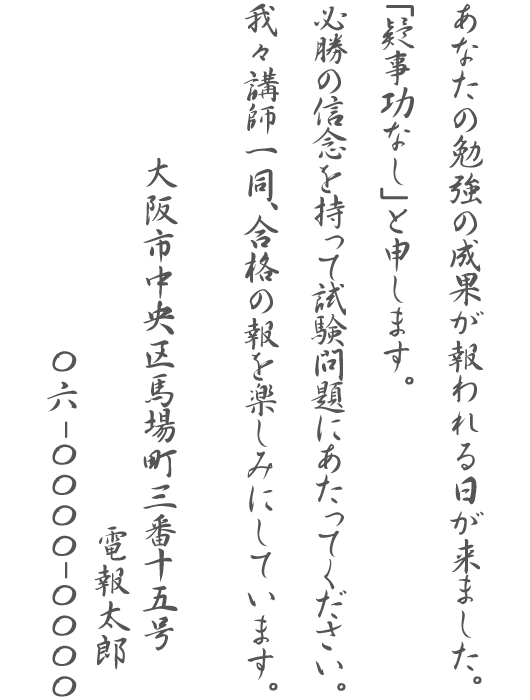 あなたの勉強の成果が報われる日が来ました。
「疑事功なし」と申します。
必勝の信念を持って試験問題にあたってください。
我々講師一同、合格の報を楽しみにしています。
大阪市中央区馬場町三番十五号
電報太郎
〇六-〇〇〇〇-〇〇〇〇